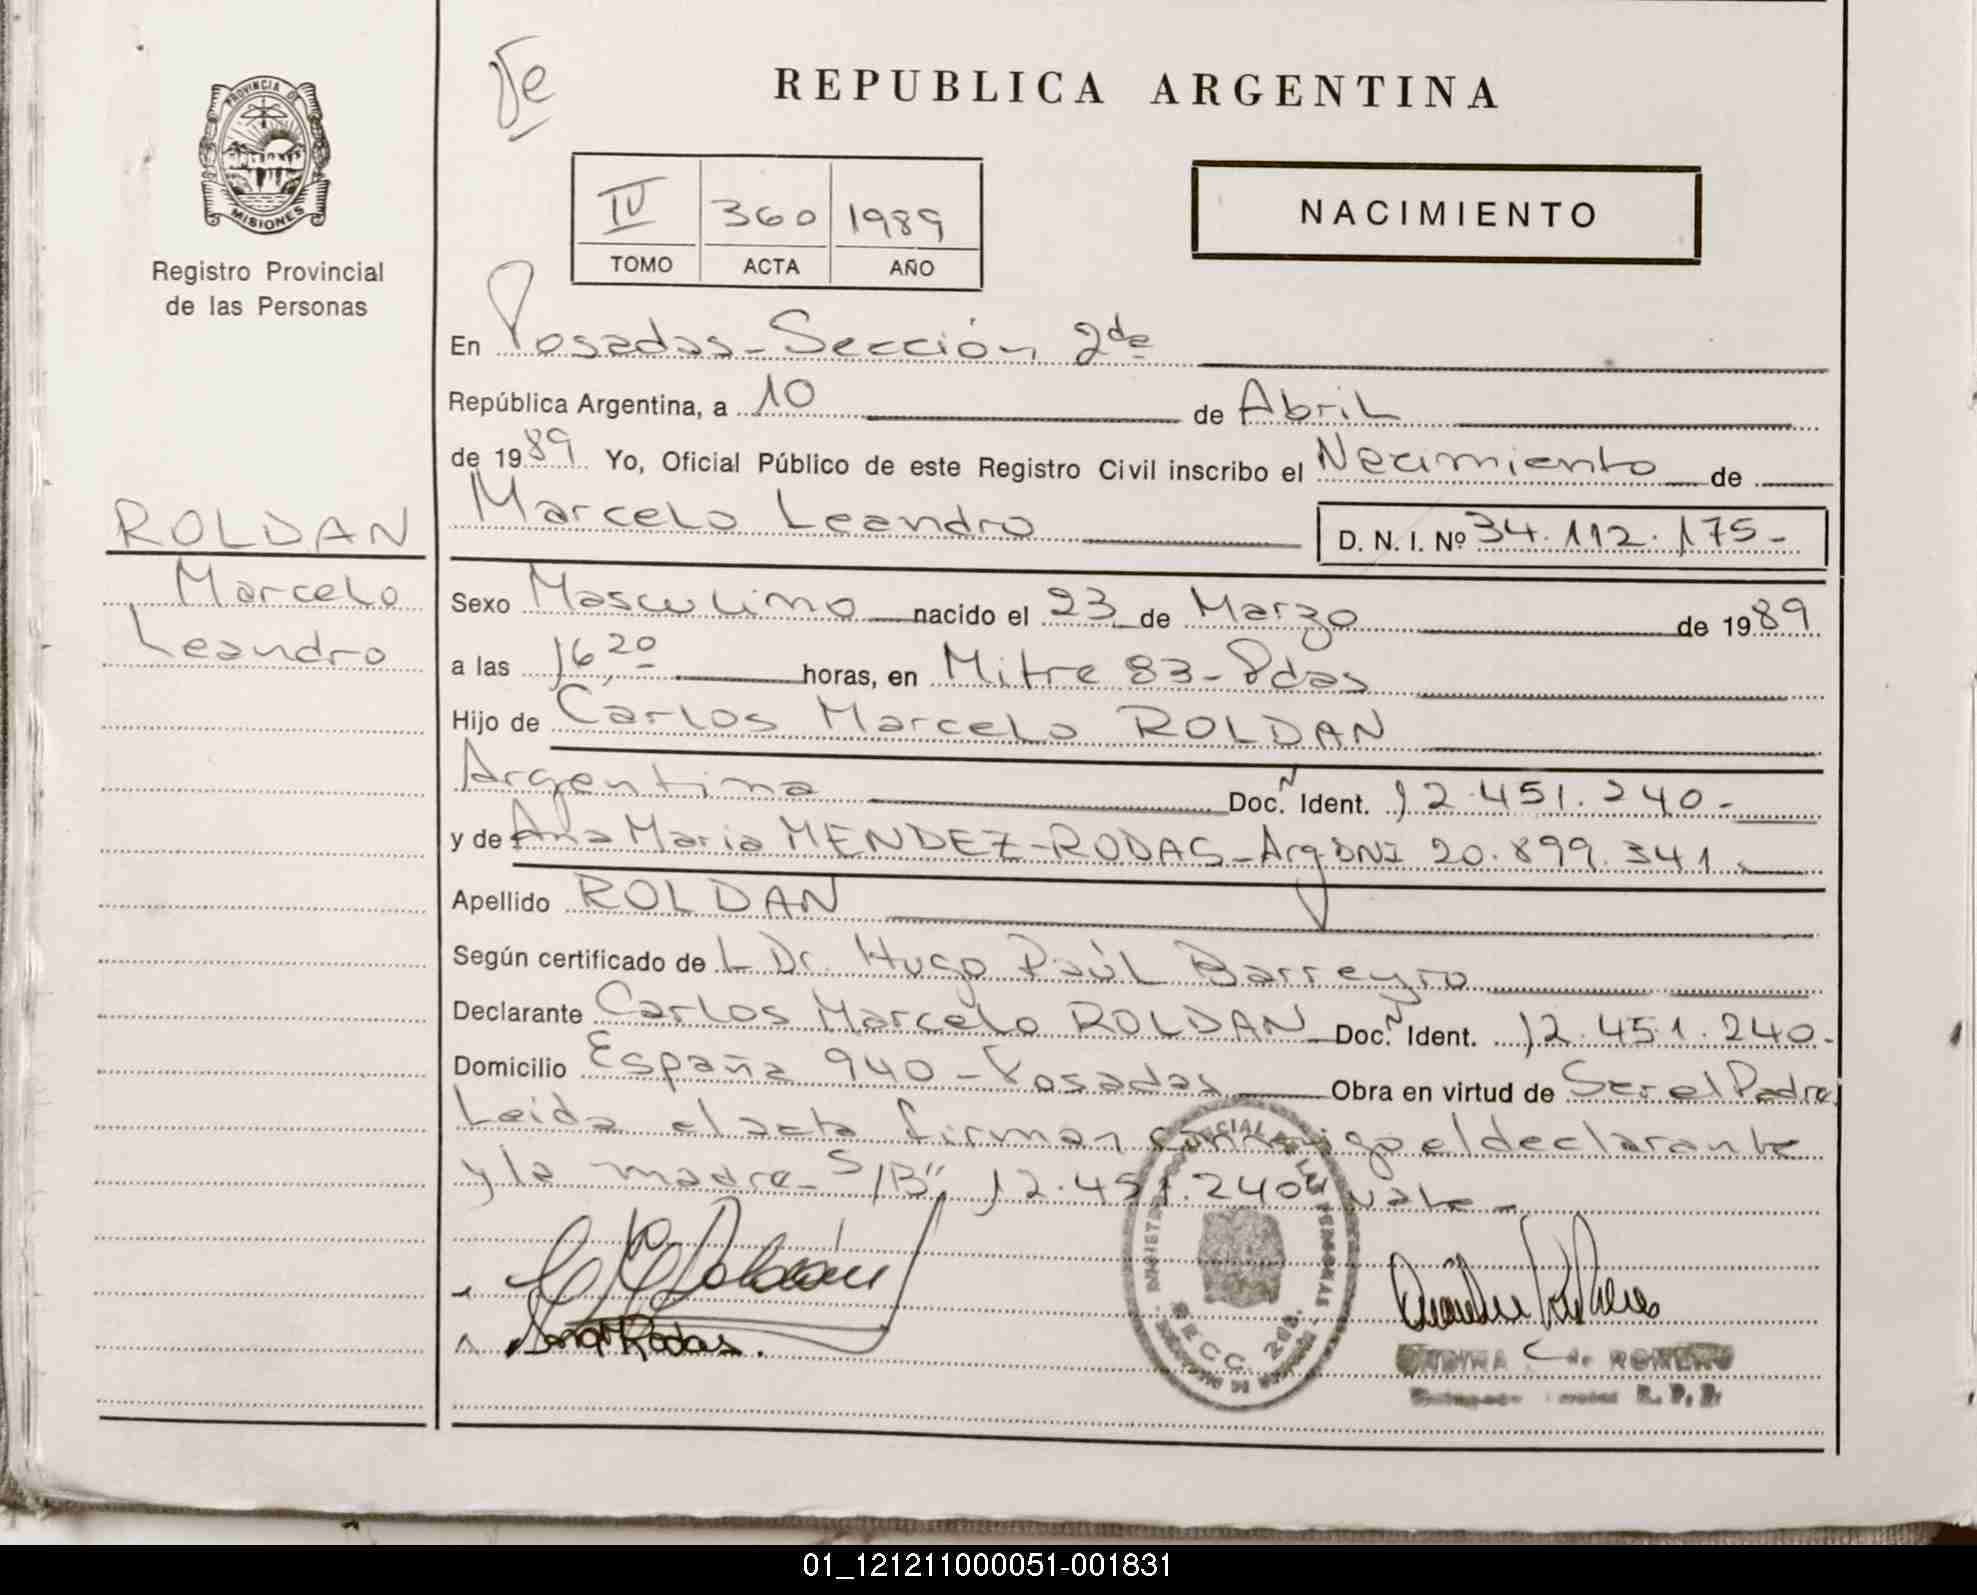 PROVINCIA DE
MISIONES
Registro Provincial
de las Personas
ROLDAN
Marcelo
Leandro
REPUBLICA ARGENTINA
IV 360 1989
TOMO ACTA AÑO
NACIMIENTO
En Posadas - Sección 2da
República Argentina, a 10 de Abril
de 1989. Yo, Oficial Público de este Registro Civil inscribo el Nacimiento de
Marcelo Leandro D. N. I. Nº 34.112.175-
Sexo Masculino nacido el 23 de Marzo de 1989
a las 16,20 horas, en Mitre 83 - Pdas
Hijo de Carlos Marcelo ROLDAN
Argentina Doc. N Ident. 12.451.240.-
y de Ana Maria MENDEZ-RODAS - Arg DNI 20.899.341.
Apellido ROLDAN
Según certificado de L Dr. Hugo Raúl Barreyro
Declarante Carlos Marcelo ROLDAN Doc. N Ident. 12.451.240.-
Domicilio España 940 - Posadas Obra en virtud de Ser el Padre
Leida el acta firman conmigo el declarante
y la madre - S/B" 12.451.240" vale -
Roldán
Ana M Rodas.
SECC. 2da.
de ROMERO
R. P. P.
01_121211000051-001831